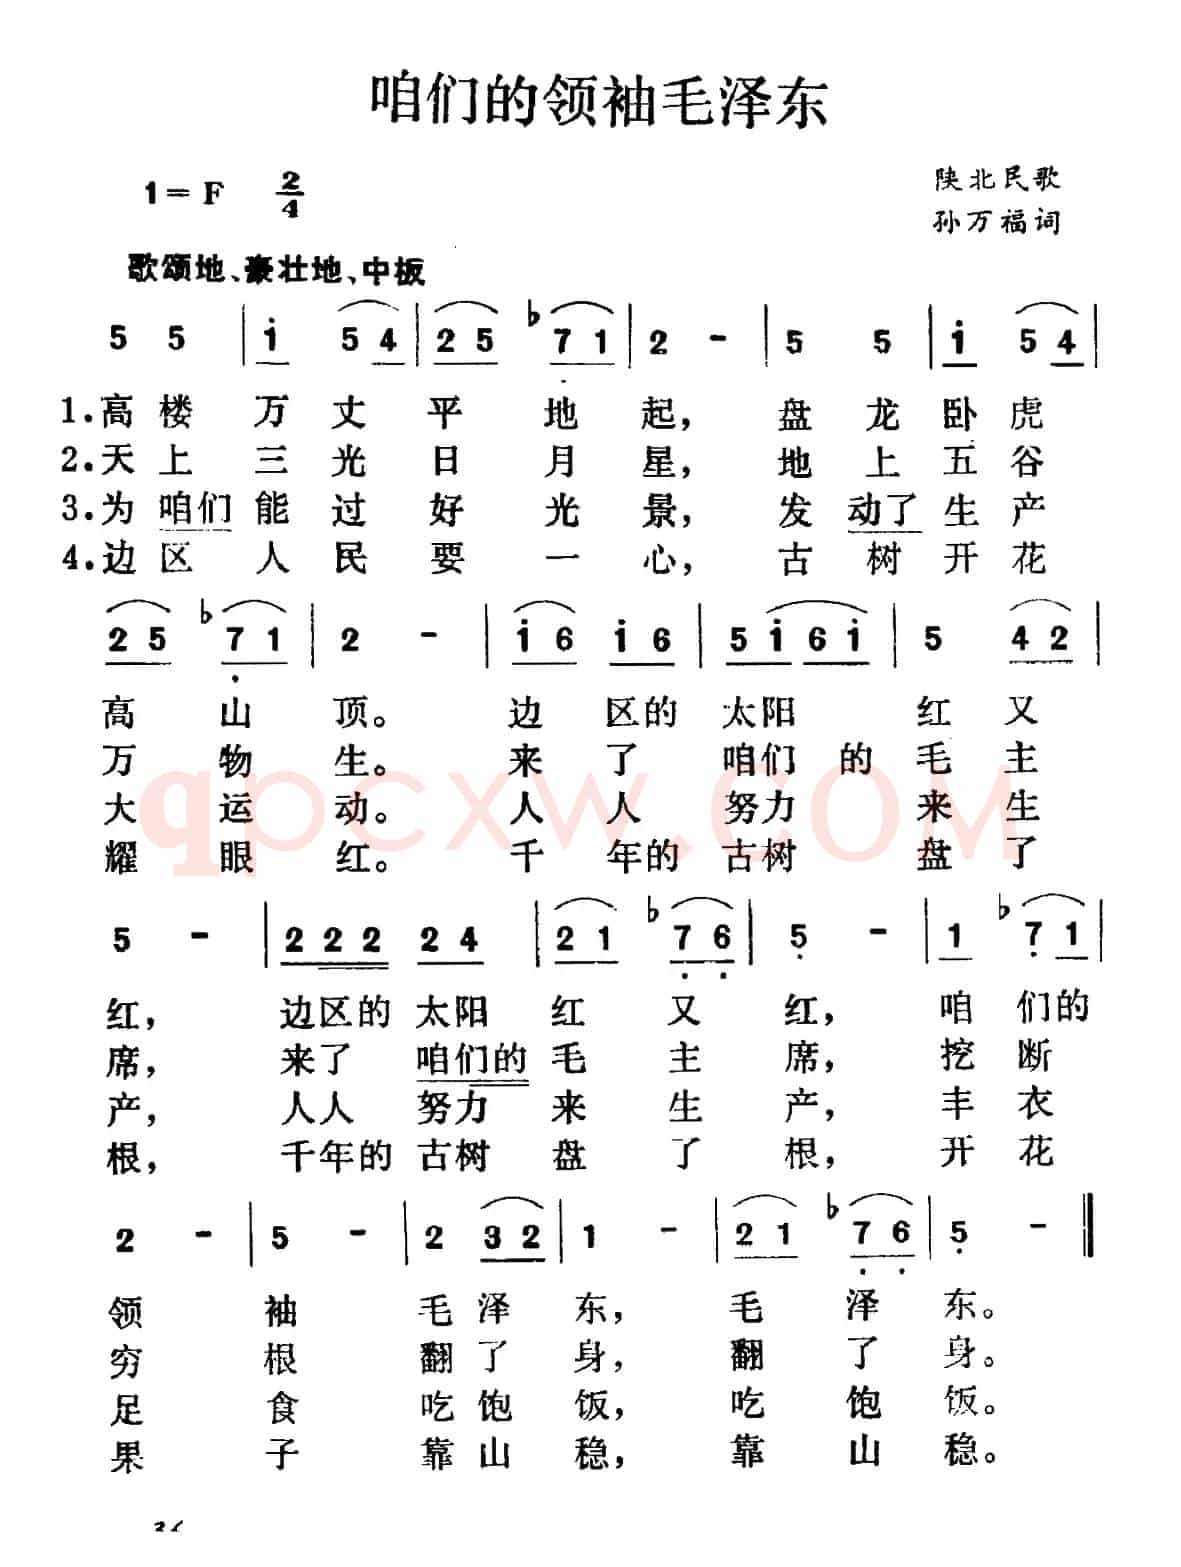 咱们的领袖毛泽东
1=F 2/4
陕北民歌
孙万福词
歌颂地、豪壮地、中板
5 5 | i 5 4 | 2 5 ♭7 1 | 2 - | 5 5 | i 5 4 |
1.高楼万丈平地起，盘龙卧虎
2.天上三光日月星，地上五谷
3.为咱们能过好光景，发动了生产
4.边区人民要一心，古树开花
2 5 ♭7 1 | 2 - | i 6 i 6 | 5 i 6 i | 5 4 2 |
高山顶。边区的太阳红又
万物生。来了咱们的毛主
大运动。人人努力来生
耀眼红。千年的古树盘了
qpcxw.COM
5 - | 2 2 2 2 4 | 2 1 ♭7 6 | 5 - | 1 ♭7 1 |
红，边区的太阳红又红，咱们的
席，来了咱们的毛主席，挖断
产，人人努力来生产，丰衣
根，千年的古树盘了根，开花
2 - | 5 - | 2 3 2 | 1 - | 2 1 ♭7 6 | 5 - ‖
领袖毛泽东，毛泽东。
穷根翻了身，翻了身。
足食吃饱饭，吃饱饭。
果子靠山稳，靠山稳。